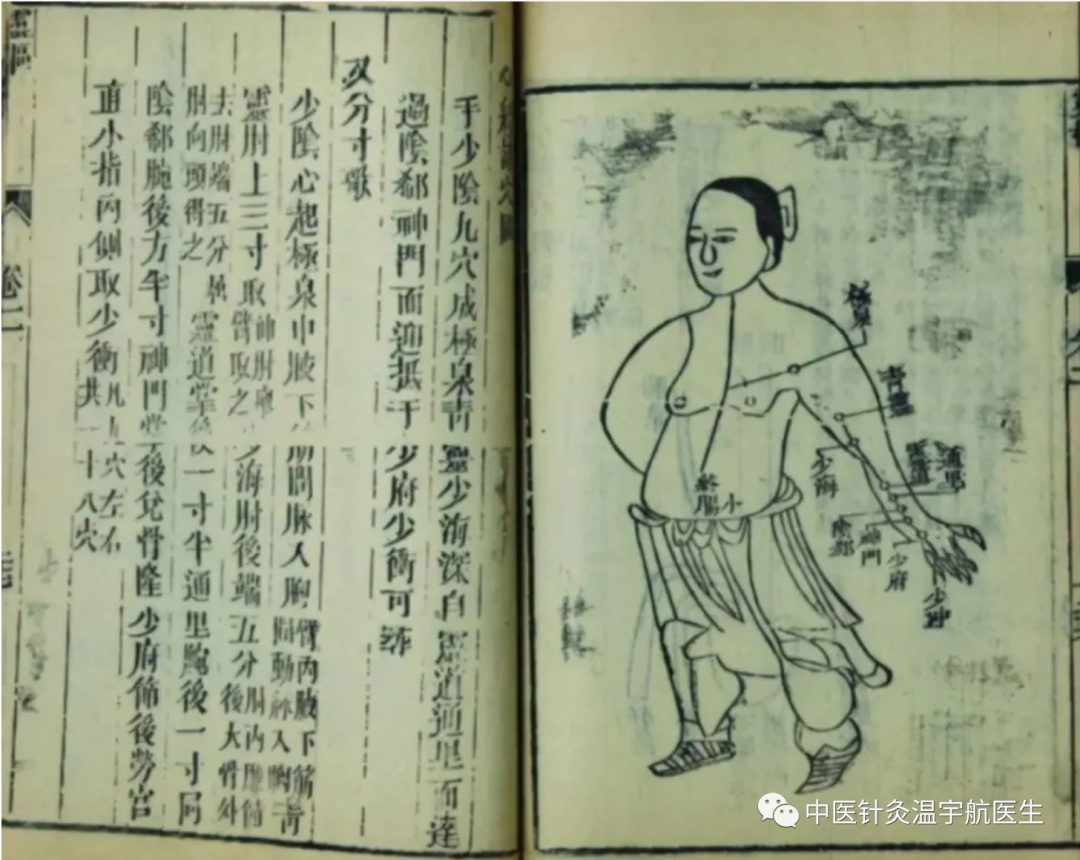 手少陰九穴成極泉青靈少海深自靈道通里而達
過陰郄神門而迎抵于少府少衝可尋
又分寸歌
少陰心起極泉中腋下筋間脉入胸臂內腋下筋
間動脉入胸青
靈肘上三寸取伸肘舉
臂取之少海肘後端五分肘內廉節
後大骨外
去肘端五分屈
肘向頭得之靈道掌後一寸半通里腕後一寸同
陰郄腕後方半寸神門掌後兌骨隆少府節後勞宮
直小指內側取少衝凡九穴左右
共一十八穴
靈樞
卷二
極泉
青靈
少海
通里
靈道
陰郄
神門
少府
少冲
絡小腸
中医针灸温宇航医生